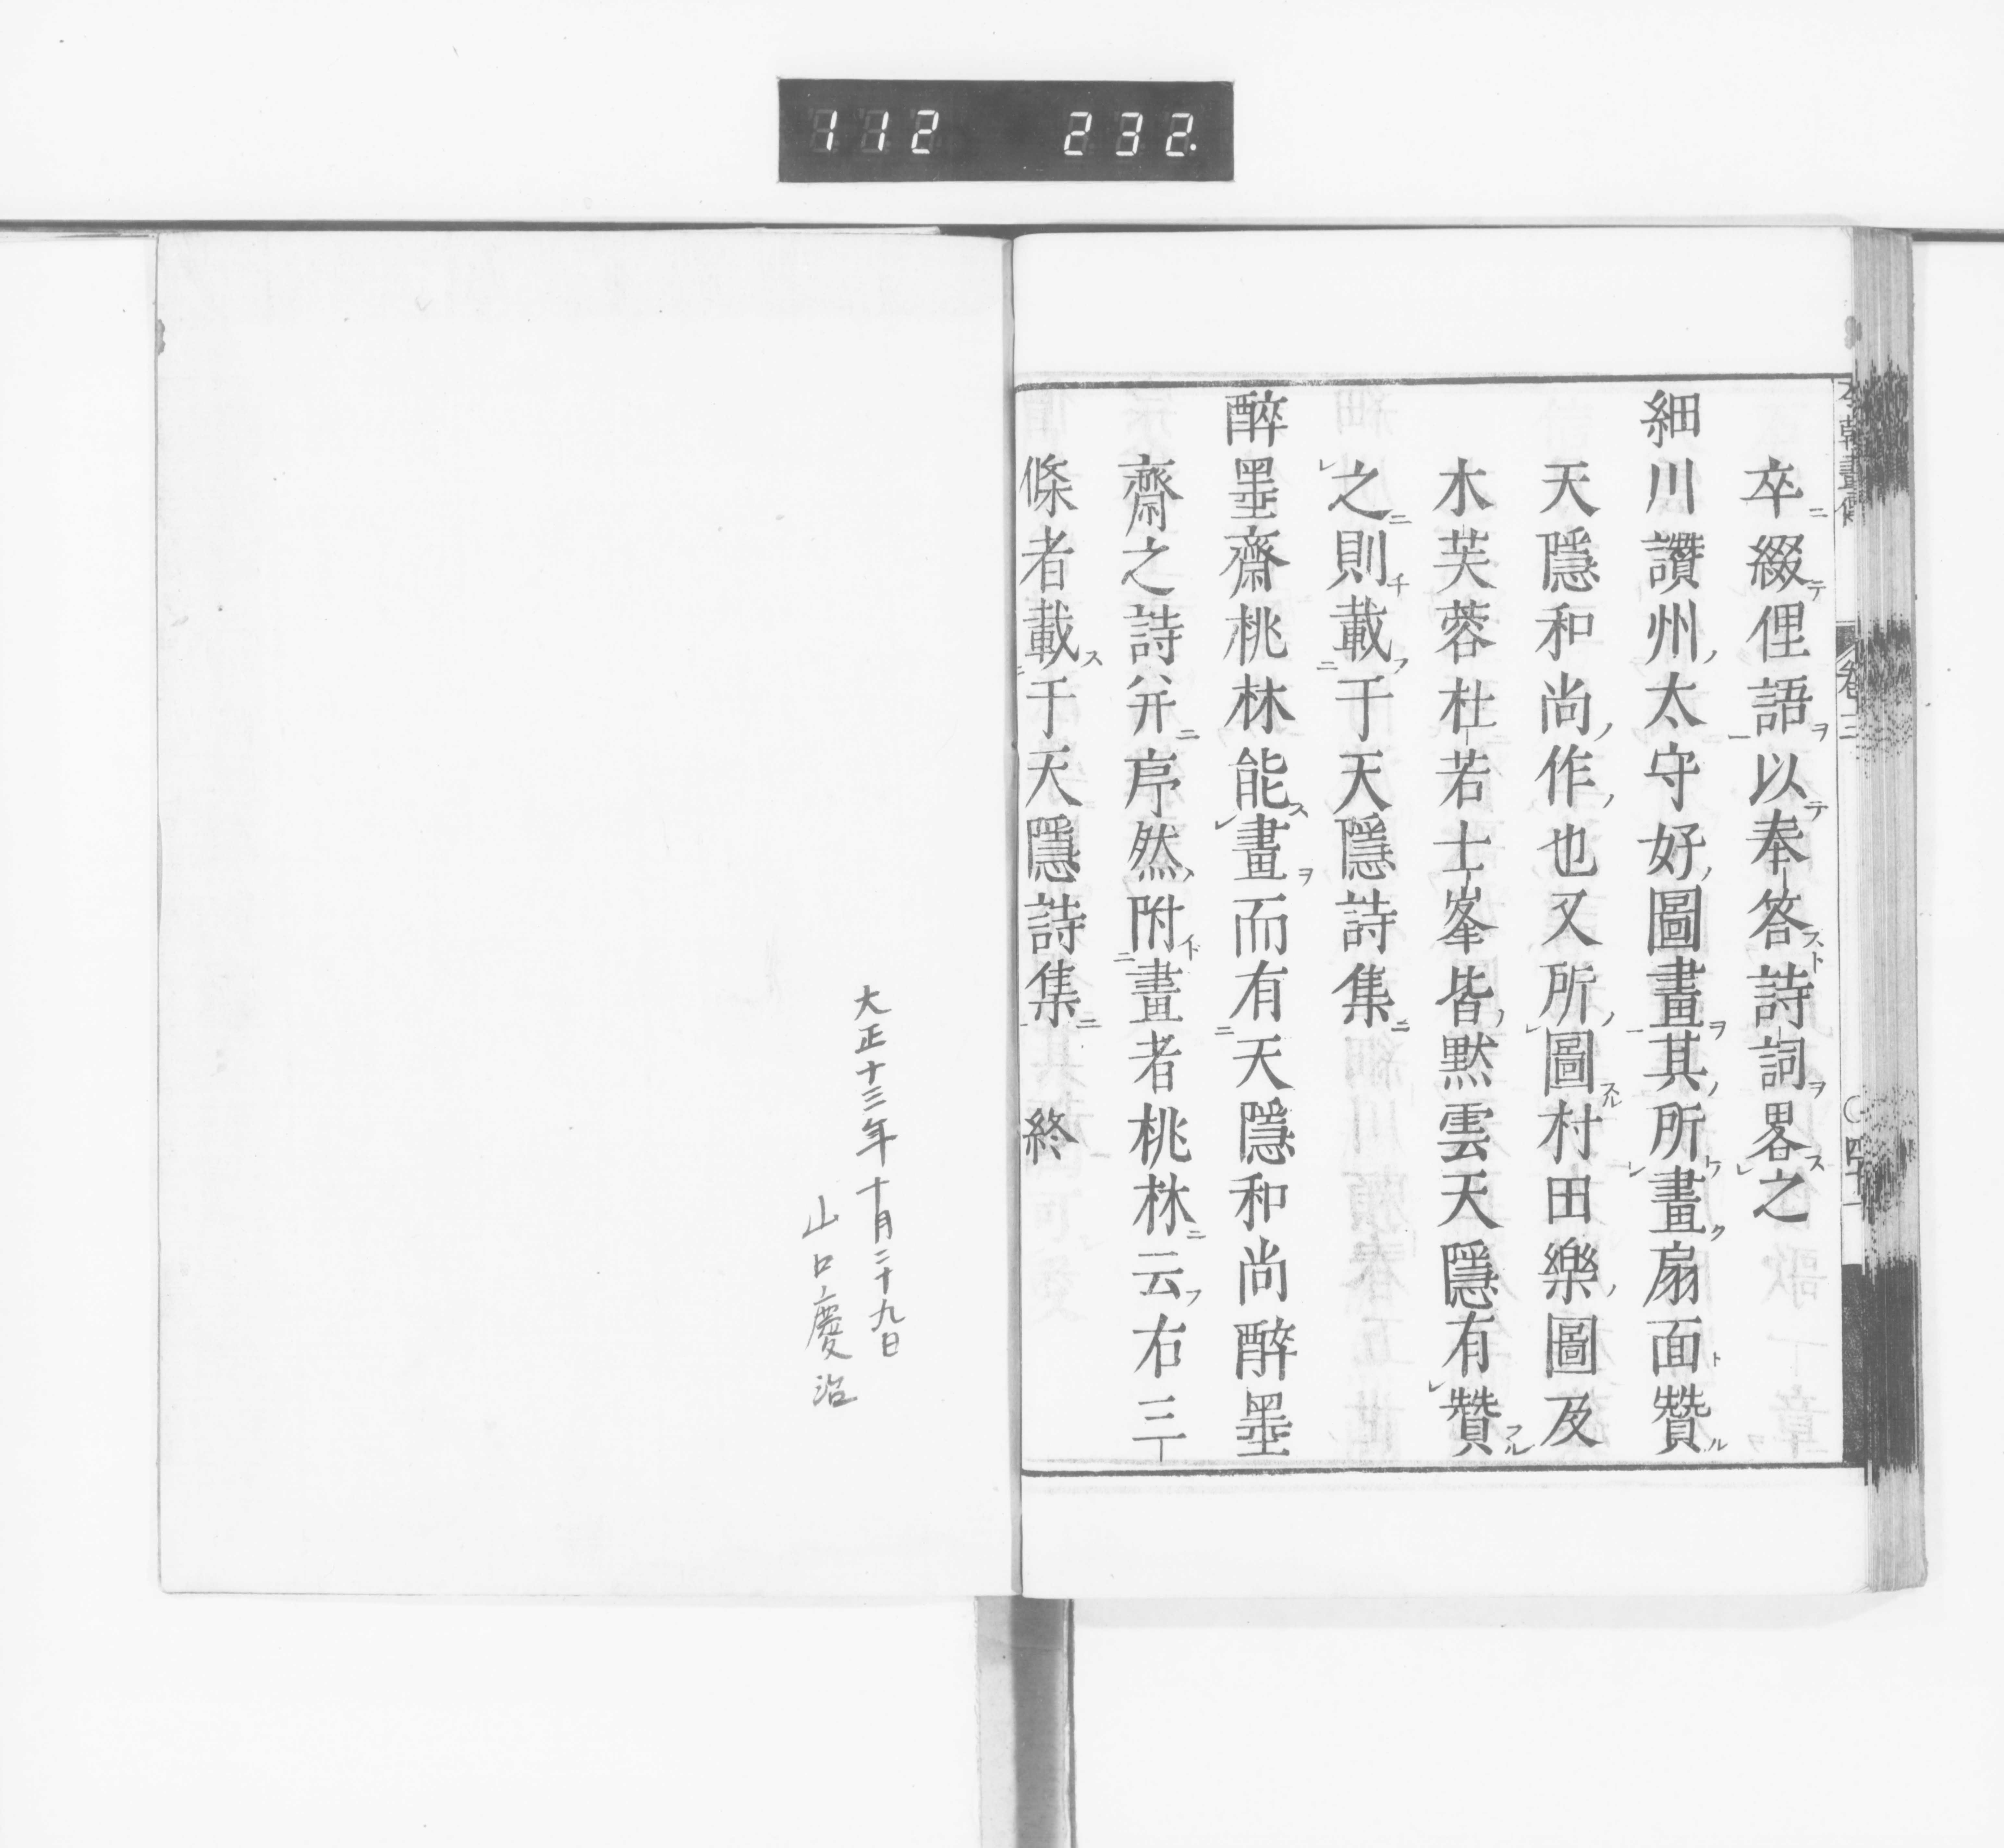 112 232.
卒綴俚語以奉答詩詞畧之
細川讚州太守好圖畫其所畫扇面贊
天隱和尚作也又所圖村田樂圖及
木芙蓉杜若士峯皆默雲天隱有贊
之則載于天隱詩集
醉墨齋桃林能畫而有天隱和尚醉墨
齋之詩并序然附畫者桃林云右三
條者載于天隱詩集 終
大正十三年十月二十九日
山口慶治